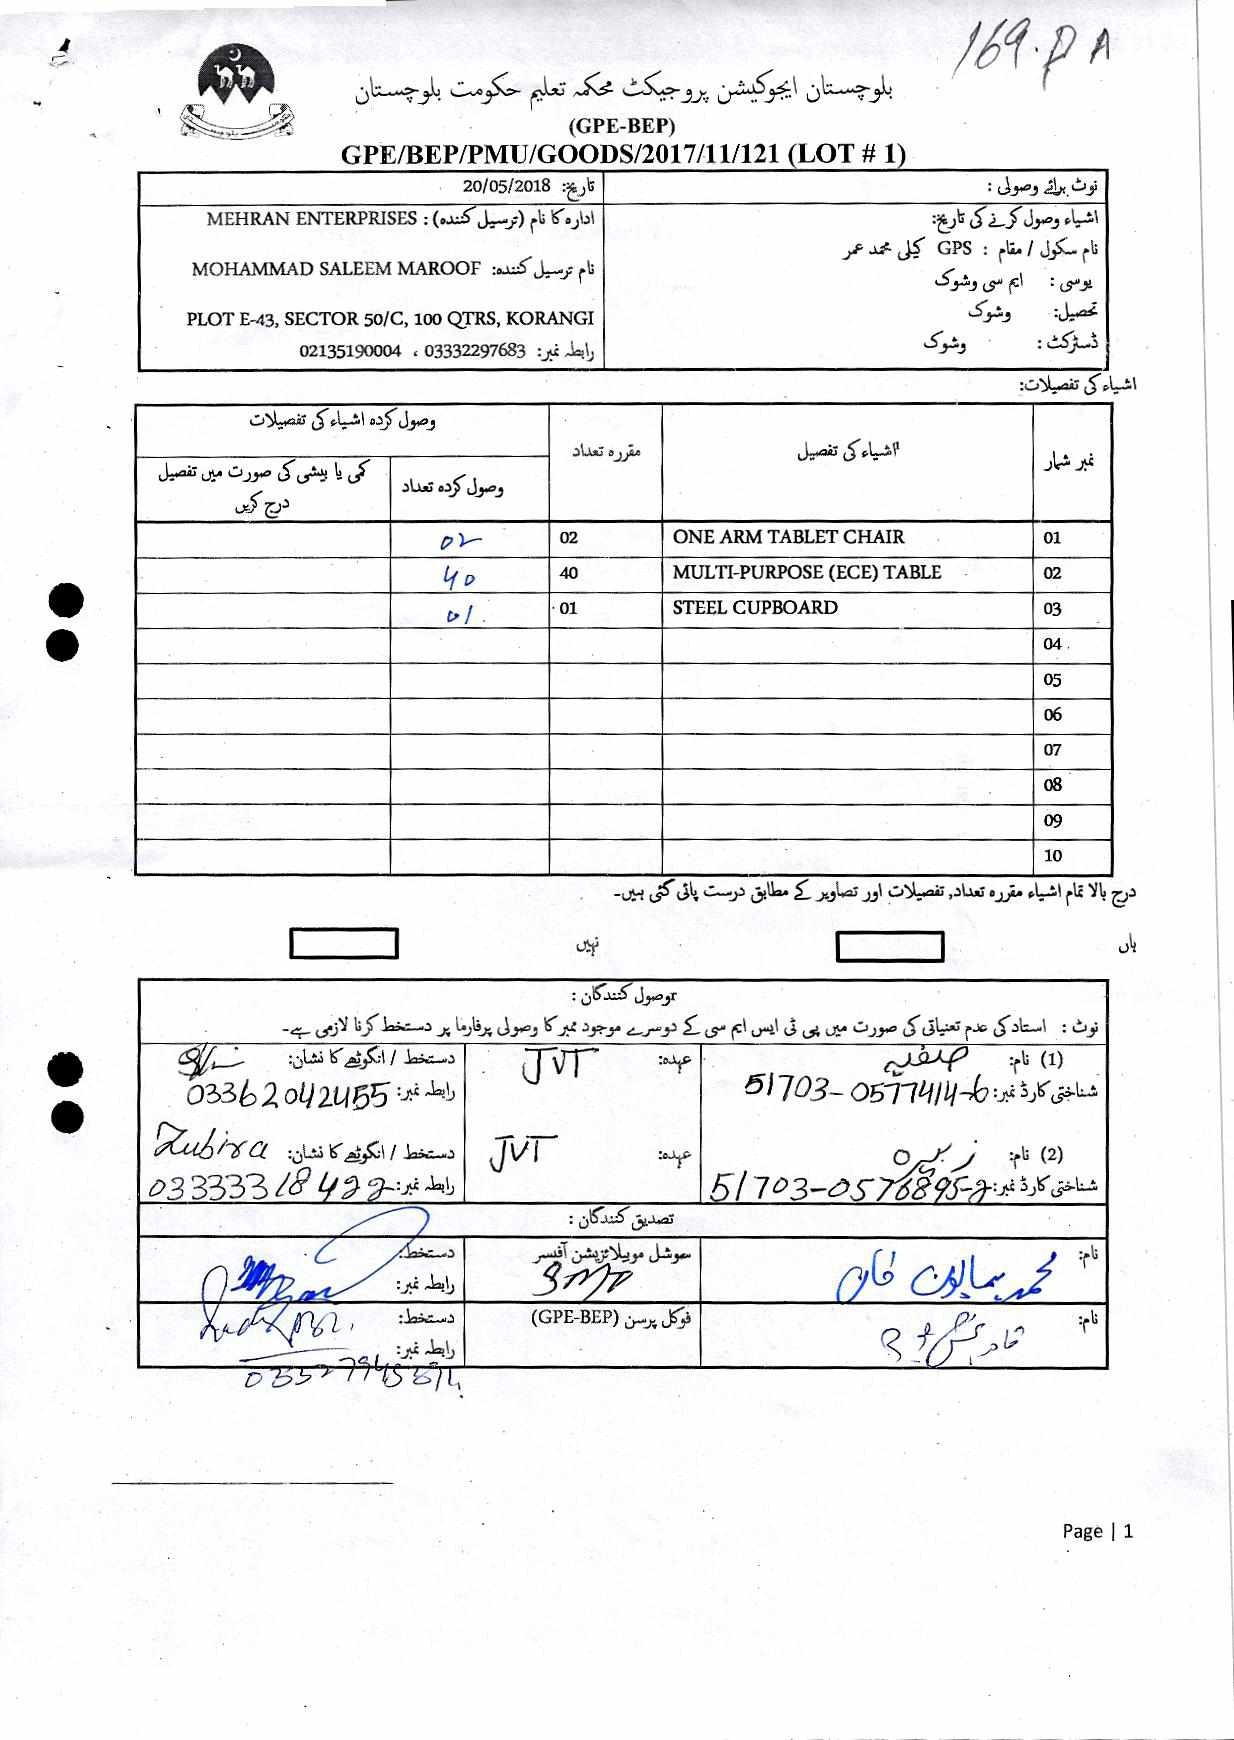 169.PA
بلوچستان ایجوکیشن پروجیکٹ محکمہ تعلیم حکومت بلوچستان
(GPE-BEP)
GPE/BEP/PMU/GOODS/2017/11/121 (LOT # 1)
نوٹ برائے وصولی :
اشیاء وصول کرنے کی تاریخ:
نام سکول / مقام : GPS کلی محمد عمر
یوسی: ایم سی وشوک
تحصیل: وشوک
ڈسٹرکٹ : وشوک
تاریخ: 20/05/2018
ادارہ کا نام (ترسیل کنندہ) : MEHRAN ENTERPRISES
نام ترسیل کنندہ: MOHAMMAD SALEEM MAROOF
PLOT E-43, SECTOR 50/C, 100 QTRS, KORANGI
رابطہ نمبر: 03332297683 ، 02135190004
اشیاء کی تفصیلات:
نمبر شمار اشیاء کی تفصیل مقررہ تعداد وصول کردہ اشیاء کی تفصیلات
وصول کردہ تعداد کمی یا بیشی کی صورت میں تفصیل
درج کریں
01 ONE ARM TABLET CHAIR 02 02
02 MULTI-PURPOSE (ECE) TABLE 40 40
03 STEEL CUPBOARD 01 01
04
05
06
07
08
09
10
درج بالا تمام اشیاء مقررہ تعداد, تفصیلات اور تصاویر کے مطابق درست پائی گئی ہیں۔
ہاں نہیں
وصول کنندگان :
نوٹ : استاد کی عدم تعیناتی کی صورت میں پی ٹی ایس ایم سی کے دوسرے موجود ممبر کا وصولی پرفارما پر دستخط کرنا لازمی ہے۔
(1) نام: صفیہ عہدہ: JVT دستخط / انگوٹھے کا نشان:
شناختی کارڈ نمبر: 51703-0577414-6 رابطہ نمبر: 03362042455
(2) نام: زبیرہ عہدہ: JVT دستخط / انگوٹھے کا نشان: Zubira
شناختی کارڈ نمبر: 51703-0576895-2 رابطہ نمبر: 03333318422
تصدیق کنندگان :
نام: محمد ہمایون خان سوشل موبیلائزیشن آفیسر دستخط:
رابطہ نمبر:
نام: فوکل پرسن (GPE-BEP) دستخط:
رابطہ نمبر:
Page | 1